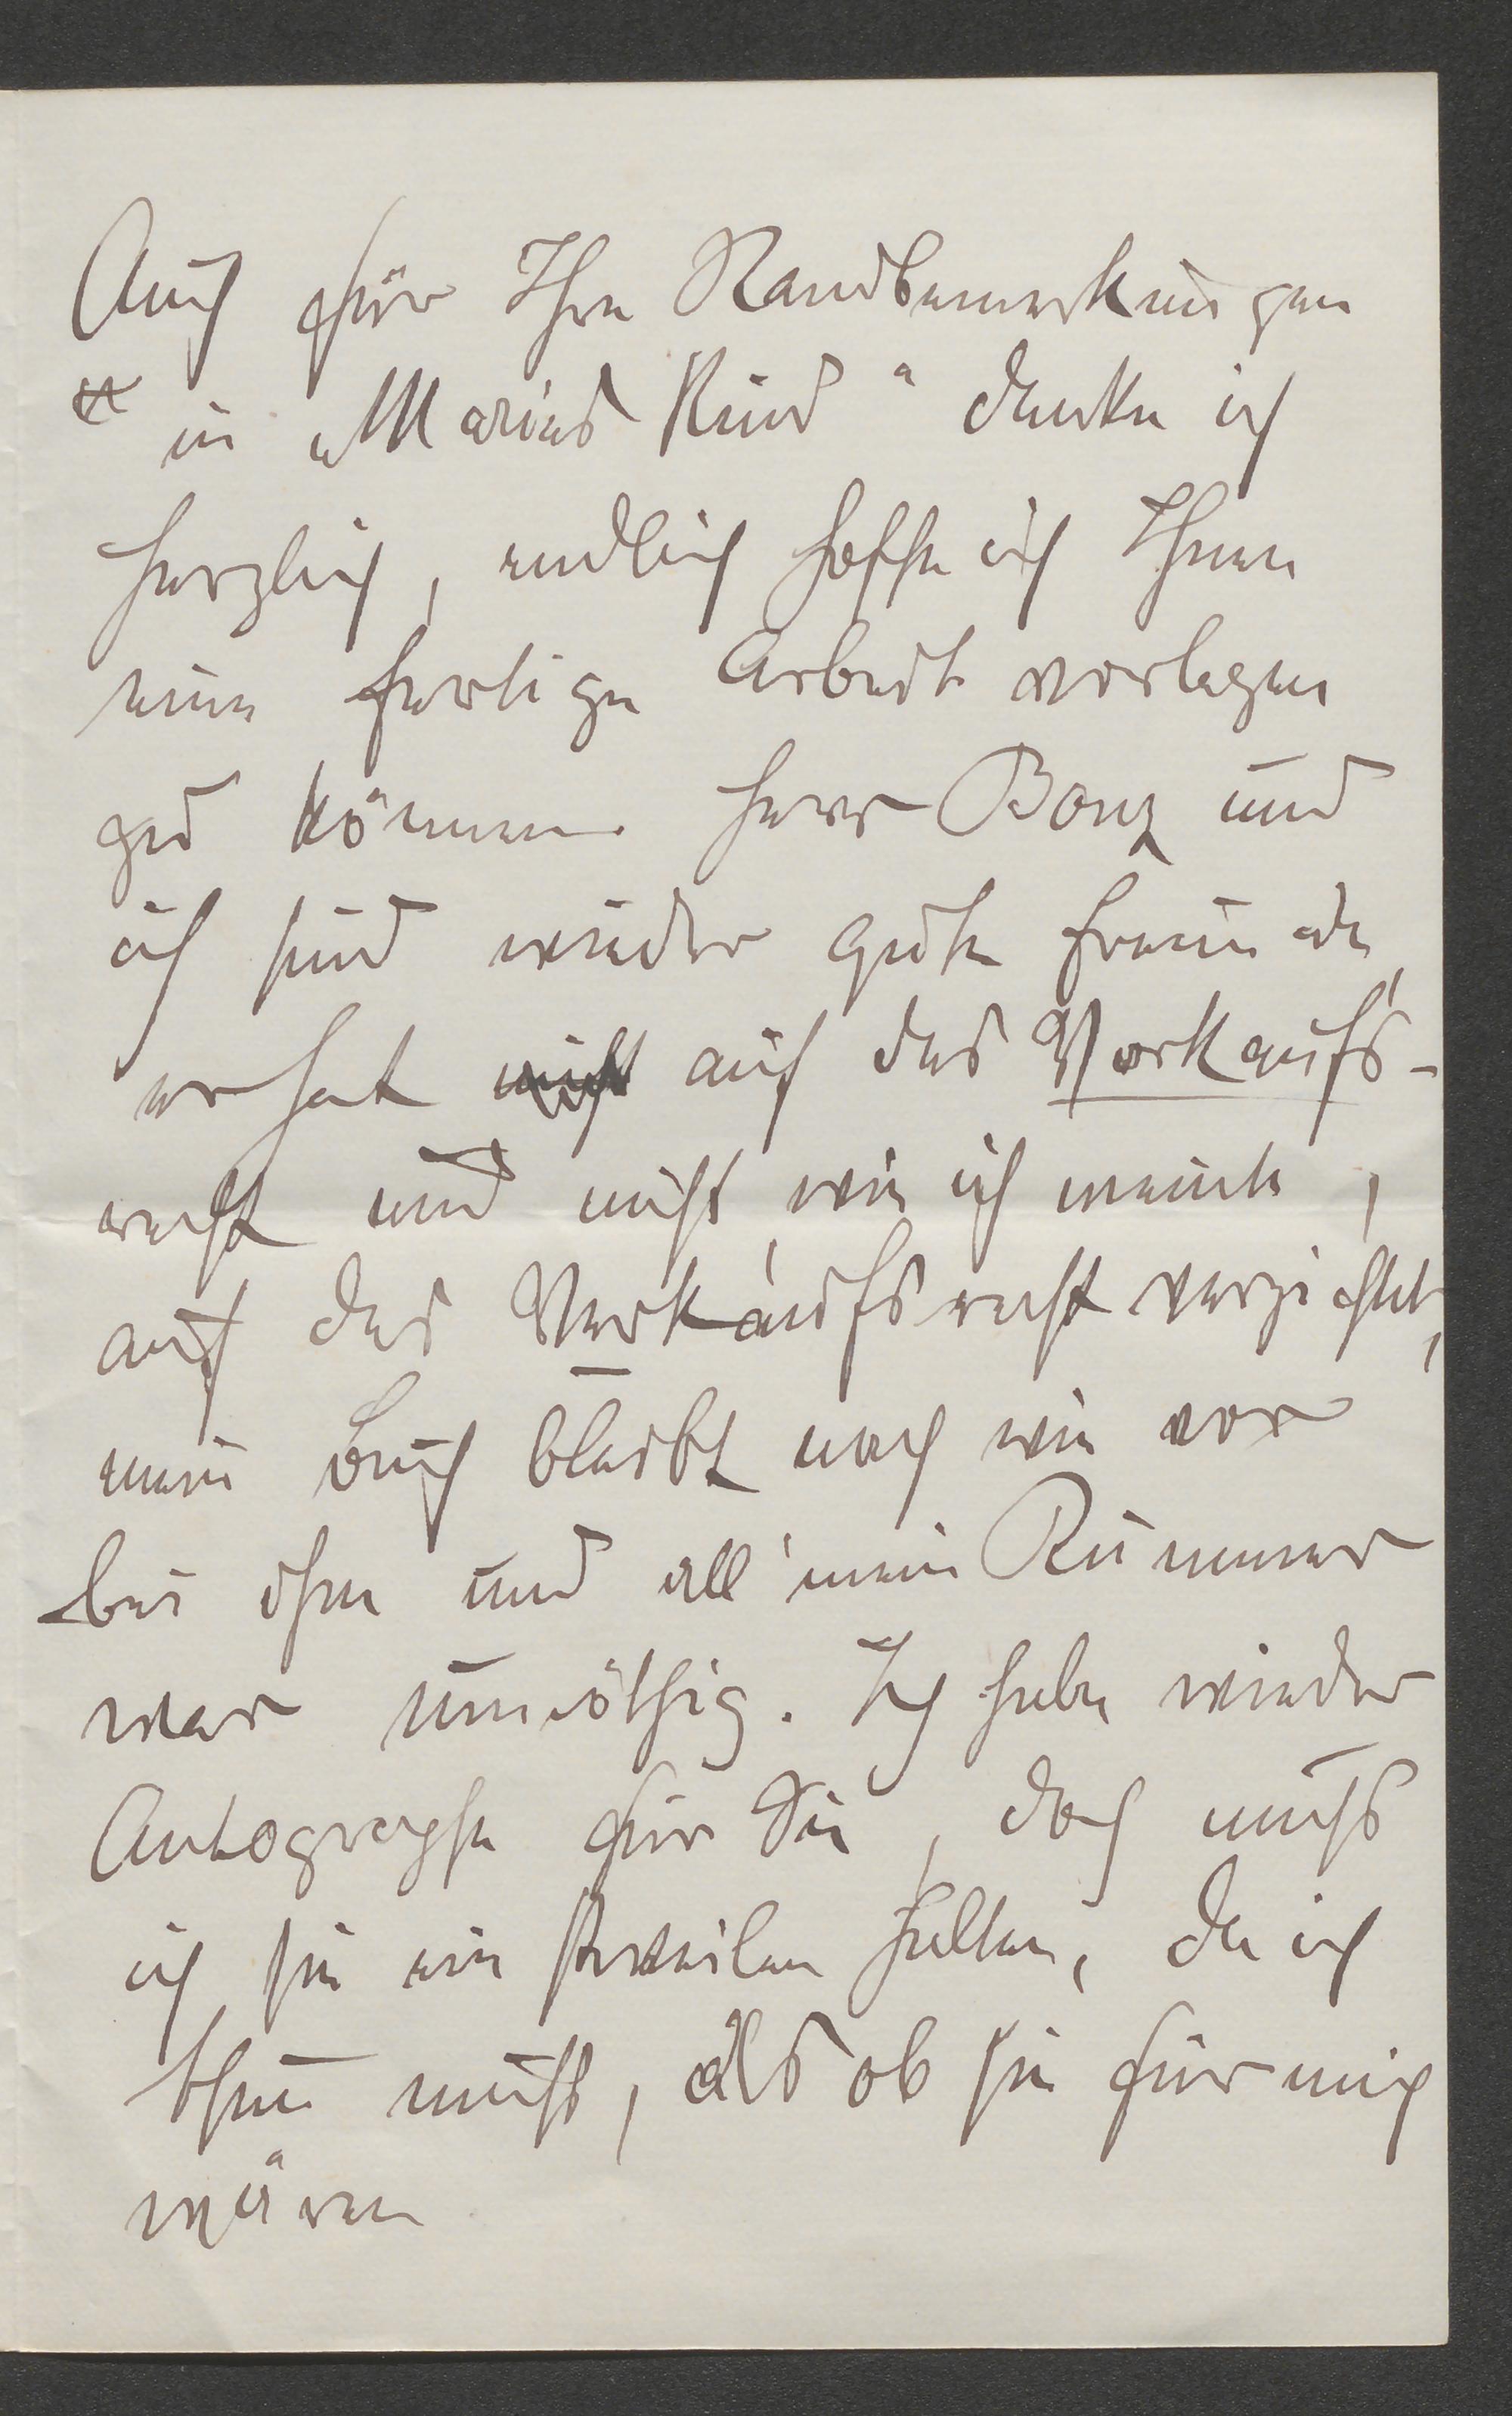 Auch für Ihre Randbemerkungen
in „Marias Kind" danke ich
herzlich, endlich hoffe ich Ihnen
eine fertige Arbeit vorlegen
zu können. Herr Bonz und
ich sind wieder gute Freunde,
er hat nicht auf das Vorkaufs-
recht und nicht, wie ich meinte,
auf das Verkaufsrecht verzichtet,
mein Buch bleibt nach wie vor
bei ihm und all' mein Kummer
war unnöthig. Ich habe wieder
Autographe für Sie, doch muß
ich sie ein halten, da ich
thun muß, als ob sie für mich
wären